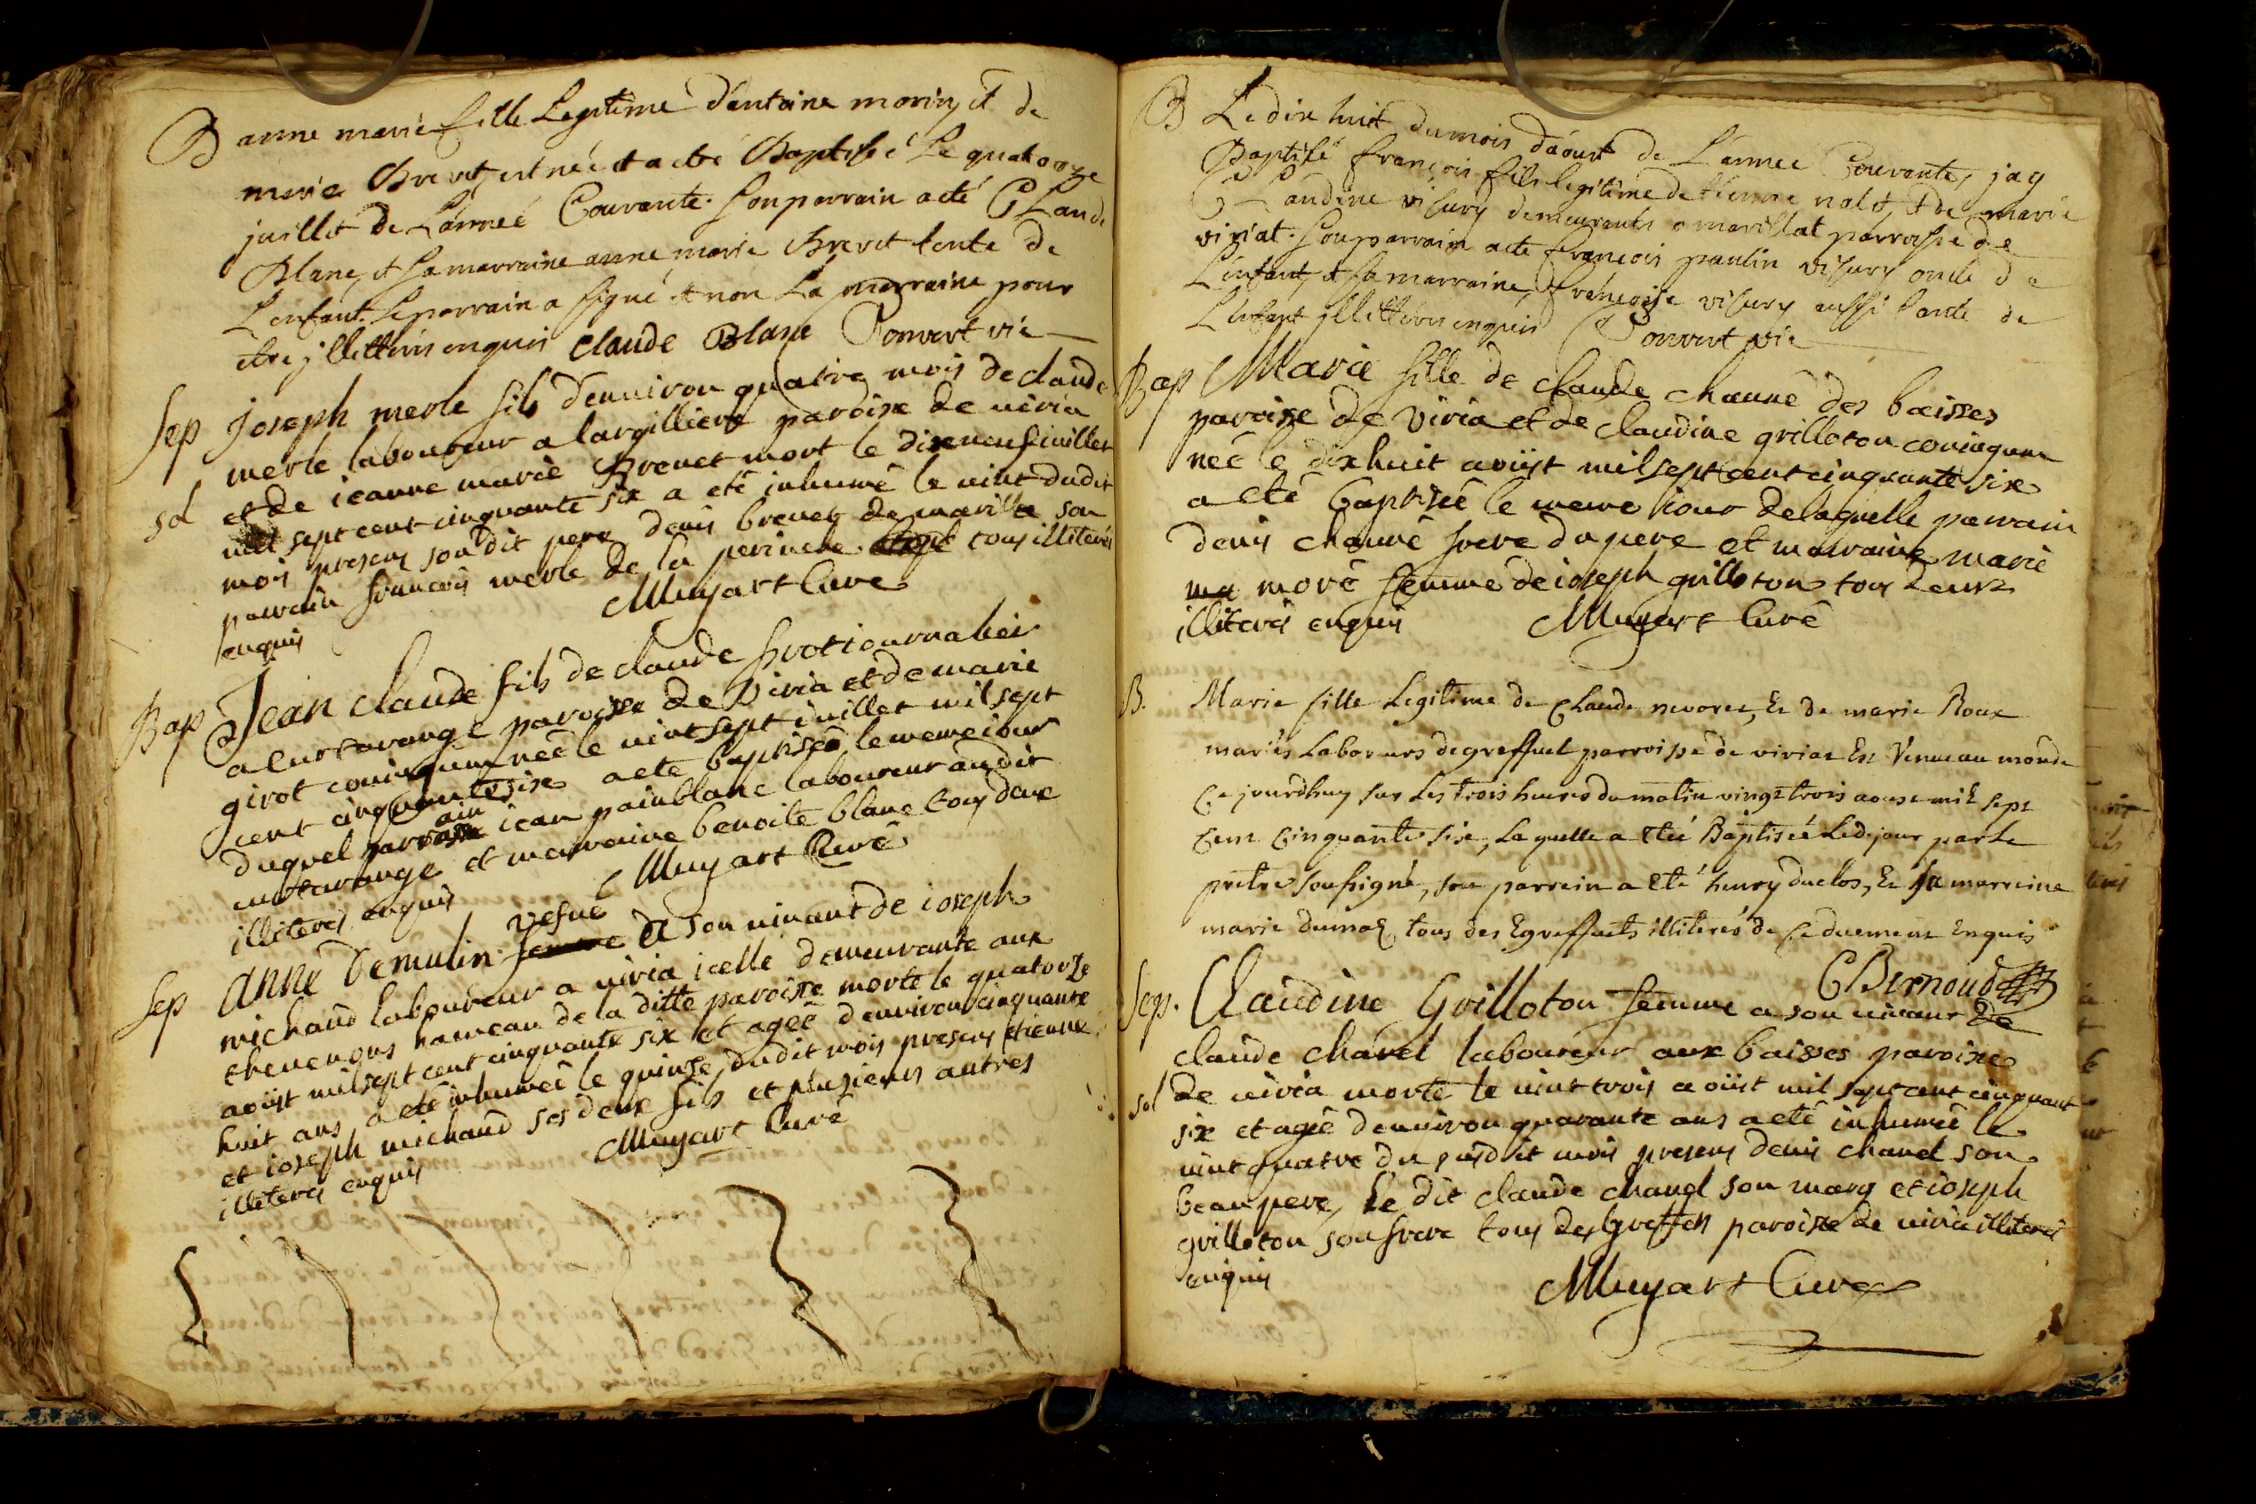 B anne marie fille Legitime d'antoine morin, et de
marie Brevet, est neé et a eté Baptisé Le quatorze
juillet de L'anneé Courante. son parrain a eté CLaude
Blanc, et sa marraine anne marie Brevet tante de
L'enfant. Le parrain a signé et non La marraine pour
etre jllitteris enquis Claude Blanc Convert vic
sep Joseph merle fils d'enuiron quatre mois de claude
merle laboureur a largilliere paroisse de uiria
et de ieanne marie Breuet mort le dixneuf iuillet
sol mil sept cent cinquante six a eté inhumé le uint dudit
mois presens son dit pere denis breuet de marilla son
parrain francois merle de la peruiche tous illiterés
enquis Muyart Curé
Bap Jean claude fils de claude frot iournalier
a curtarange paroisse de viria et de marie
girot coniugum neé le uint sept iuillet mil sept
cent cinquante six a eté baptiseé le meme iour
duquel parrain iean painblanc laboureur audit
curtarange et marraine benoite blanc tous deux
illiterés enquis Muyart Curé
sep Anne Demulin vefue femme a son uiuant de ioseph
michaud laboureur a uiria icelle demeurante aux
cheuenous hameau de la ditte paroisse morte le quatorze
aoüst mil sept cent cinquante six et ageé d'enuiron cinquante
huit ans a eté inhumeé le quinze dudit mois presens etienne
et ioseph michaud ses deux fils et plusieurs autres
illiterés enquis Muyart Curé
B Le dix huit du mois d'aoust de L'annee Courante, jay
Baptisé françois fils legitime de etienne nalet, et de marie
CLaudine visury demeurants a marillat parroisse de
viriat. son parrain a eté françois paulin visury oncle de
L'enfant, et sa marraine, françoise visury aussi tante de
L'enfant jllitteris enquis Convert vic
Bap Marie fille de claude chaune des baisses
paroisse de viria et de claudine grilloton coniugum
neé le dixhuit aoüst mil sept cent cinquante six
a eté baptiseé le meme iour de laquelle parrain
denis chauné frere du pere et marraine marie
ma moré femme de ioseph grilloton tous deux
illiterés enquis Muyart Curé
B. Marie fille Legitime de Claude morer, Et de marie Roux
mariés Laboreurs de greffuet parroisse de viriat Est Venue au monde
Ce jourdhuy sur Les trois heures du matin vingt trois aoust mil sept
Cent Cinquante six, La quelle a Eté Baptisée Led. jour par Le
pretre soussigné, son parrein a Eté henry duclos, Et sa marreine
marie dumas, tous des Egreffuets illiterés de Ce duement Enquis
CBernoud
sep. Claudine Grilloton femme a son uiuant de
claude chauel laboureur aux baisses paroisse
sol de uiria morte le uint trois aoüst mil sept cent cinquante
six et ageé d'enuiron quarante ans a eté inhumeé le
uint quatre du susdit mois presens denis chauel son
beaupere, le dit claude chauel son mary et ioseph
grilloton son frere tous des greffets paroisse de uiria illiterés
enquis Muyart Curé